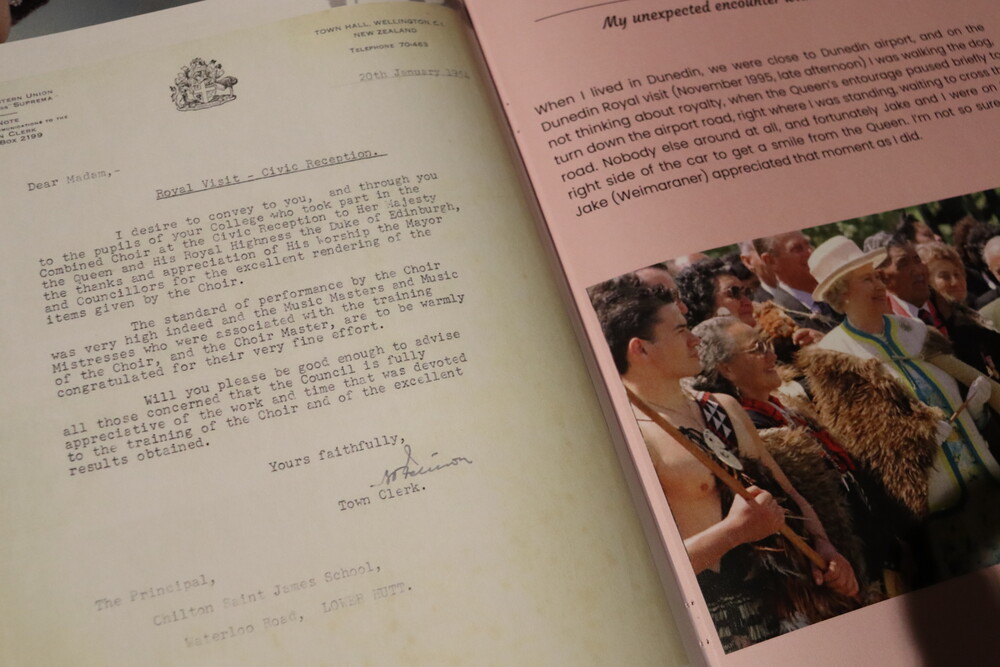 TOWN HALL, WELLINGTON, C.1
NEW ZEALAND
TELEPHONE 70-463
20th January
TERN UNION
SUPREMA
NOTE
TO THE
CLERK
BOX 2199
Dear Madam,-
Royal Visit - Civic Reception.
I desire to convey to you, and through you
to the pupils of your College who took part in the
Combined Choir at the Civic Reception to Her Majesty
the Queen and His Royal Highness the Duke of Edinburgh,
the thanks and appreciation of His Worship the Mayor
and Councillors for the excellent rendering of the
items given by the Choir.
The standard of performance by the Choir
was very high indeed and the Music Masters and Music
Mistresses who were associated with the training
of the Choir, and the Choir Master, are to be warmly
congratulated for their very fine effort.
Will you please be good enough to advise
all those concerned that the Council is fully
appreciative of the work and time that was devoted
to the training of the Choir and of the excellent
results obtained.
Yours faithfully,
Town Clerk.
The Principal,
Chilton Saint James School,
Waterloo Road, LOWER HUTT.
My unexpected encounter
When I lived in Dunedin, we were close to Dunedin airport, and on the
Dunedin Royal visit (November 1995, late afternoon) I was walking the dog,
not thinking about royalty, when the Queen's entourage paused briefly to
turn down the airport road, right where I was standing, waiting to cross the
road. Nobody else around at all, and fortunately Jake and I were on
right side of the car to get a smile from the Queen. I'm not so sure
Jake (Weimaraner) appreciated that moment as I did.